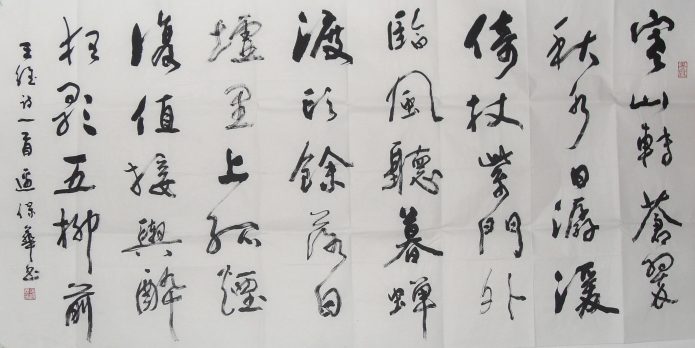 寒山轉蒼翠
秋水日潺湲
倚杖柴門外
臨風聽暮蟬
渡頭餘落日
墟里上孤煙
復值接輿醉
狂歌五柳前
王維詩一首 保華書